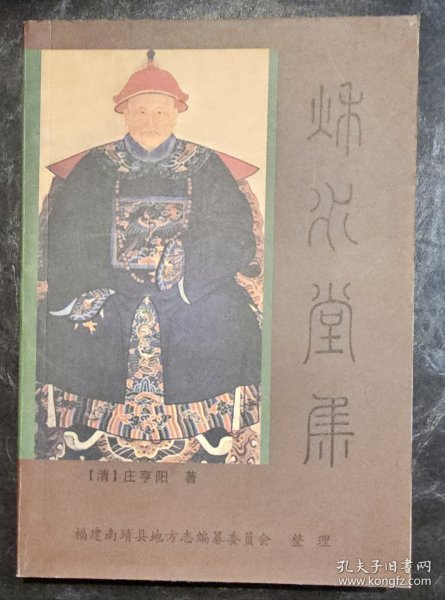 秌水堂集
【清】庄亨阳 著
福建南靖县地方志编纂委员会 整理
孔夫子旧书网
www.kongfz.com